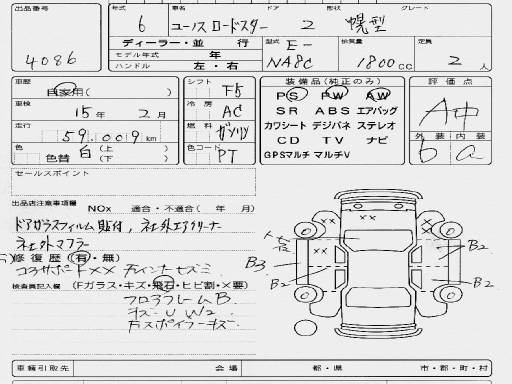 出品番号 年式 車名 ドア 形状 グレード
4086 6 ユーノス ロードスター 2 幌型
ディーラー・並行 型式 E- 排気量 定員
モデル年式 年 NA8C 1800 CC 2 人
ハンドル 左・右
車歴 シフト 装備品(純正のみ) 評価点
自家用( ) F5 PS PW AW A中
車検 15年 2月 冷房 AC SR ABS エアバッグ
走行 59,009 km 燃料 ガソリン カワシート デジパネ ステレオ 外装 内装
色 白 (上 ) CD TV ナビ b a
色替 (下 ) 色コード PT GPSマルチ マルチV
セールスポイント
出品店注意事項欄 NOx 適合・不適合( 年 月)
ドアガラスフィルム貼付,ネ社外エアクリーナー
ネ社外マフラー
修復歴(有・無)
コアサポートXX
検査員記入欄 (Fガラス・キズ・飛石・ヒビ割・X要)
フロアフレームB
キズU W2
FスポイラーキズB3 B2 B2 B2
XX XX XX
車輌引取先 会場 都・県 市・郡・町・村